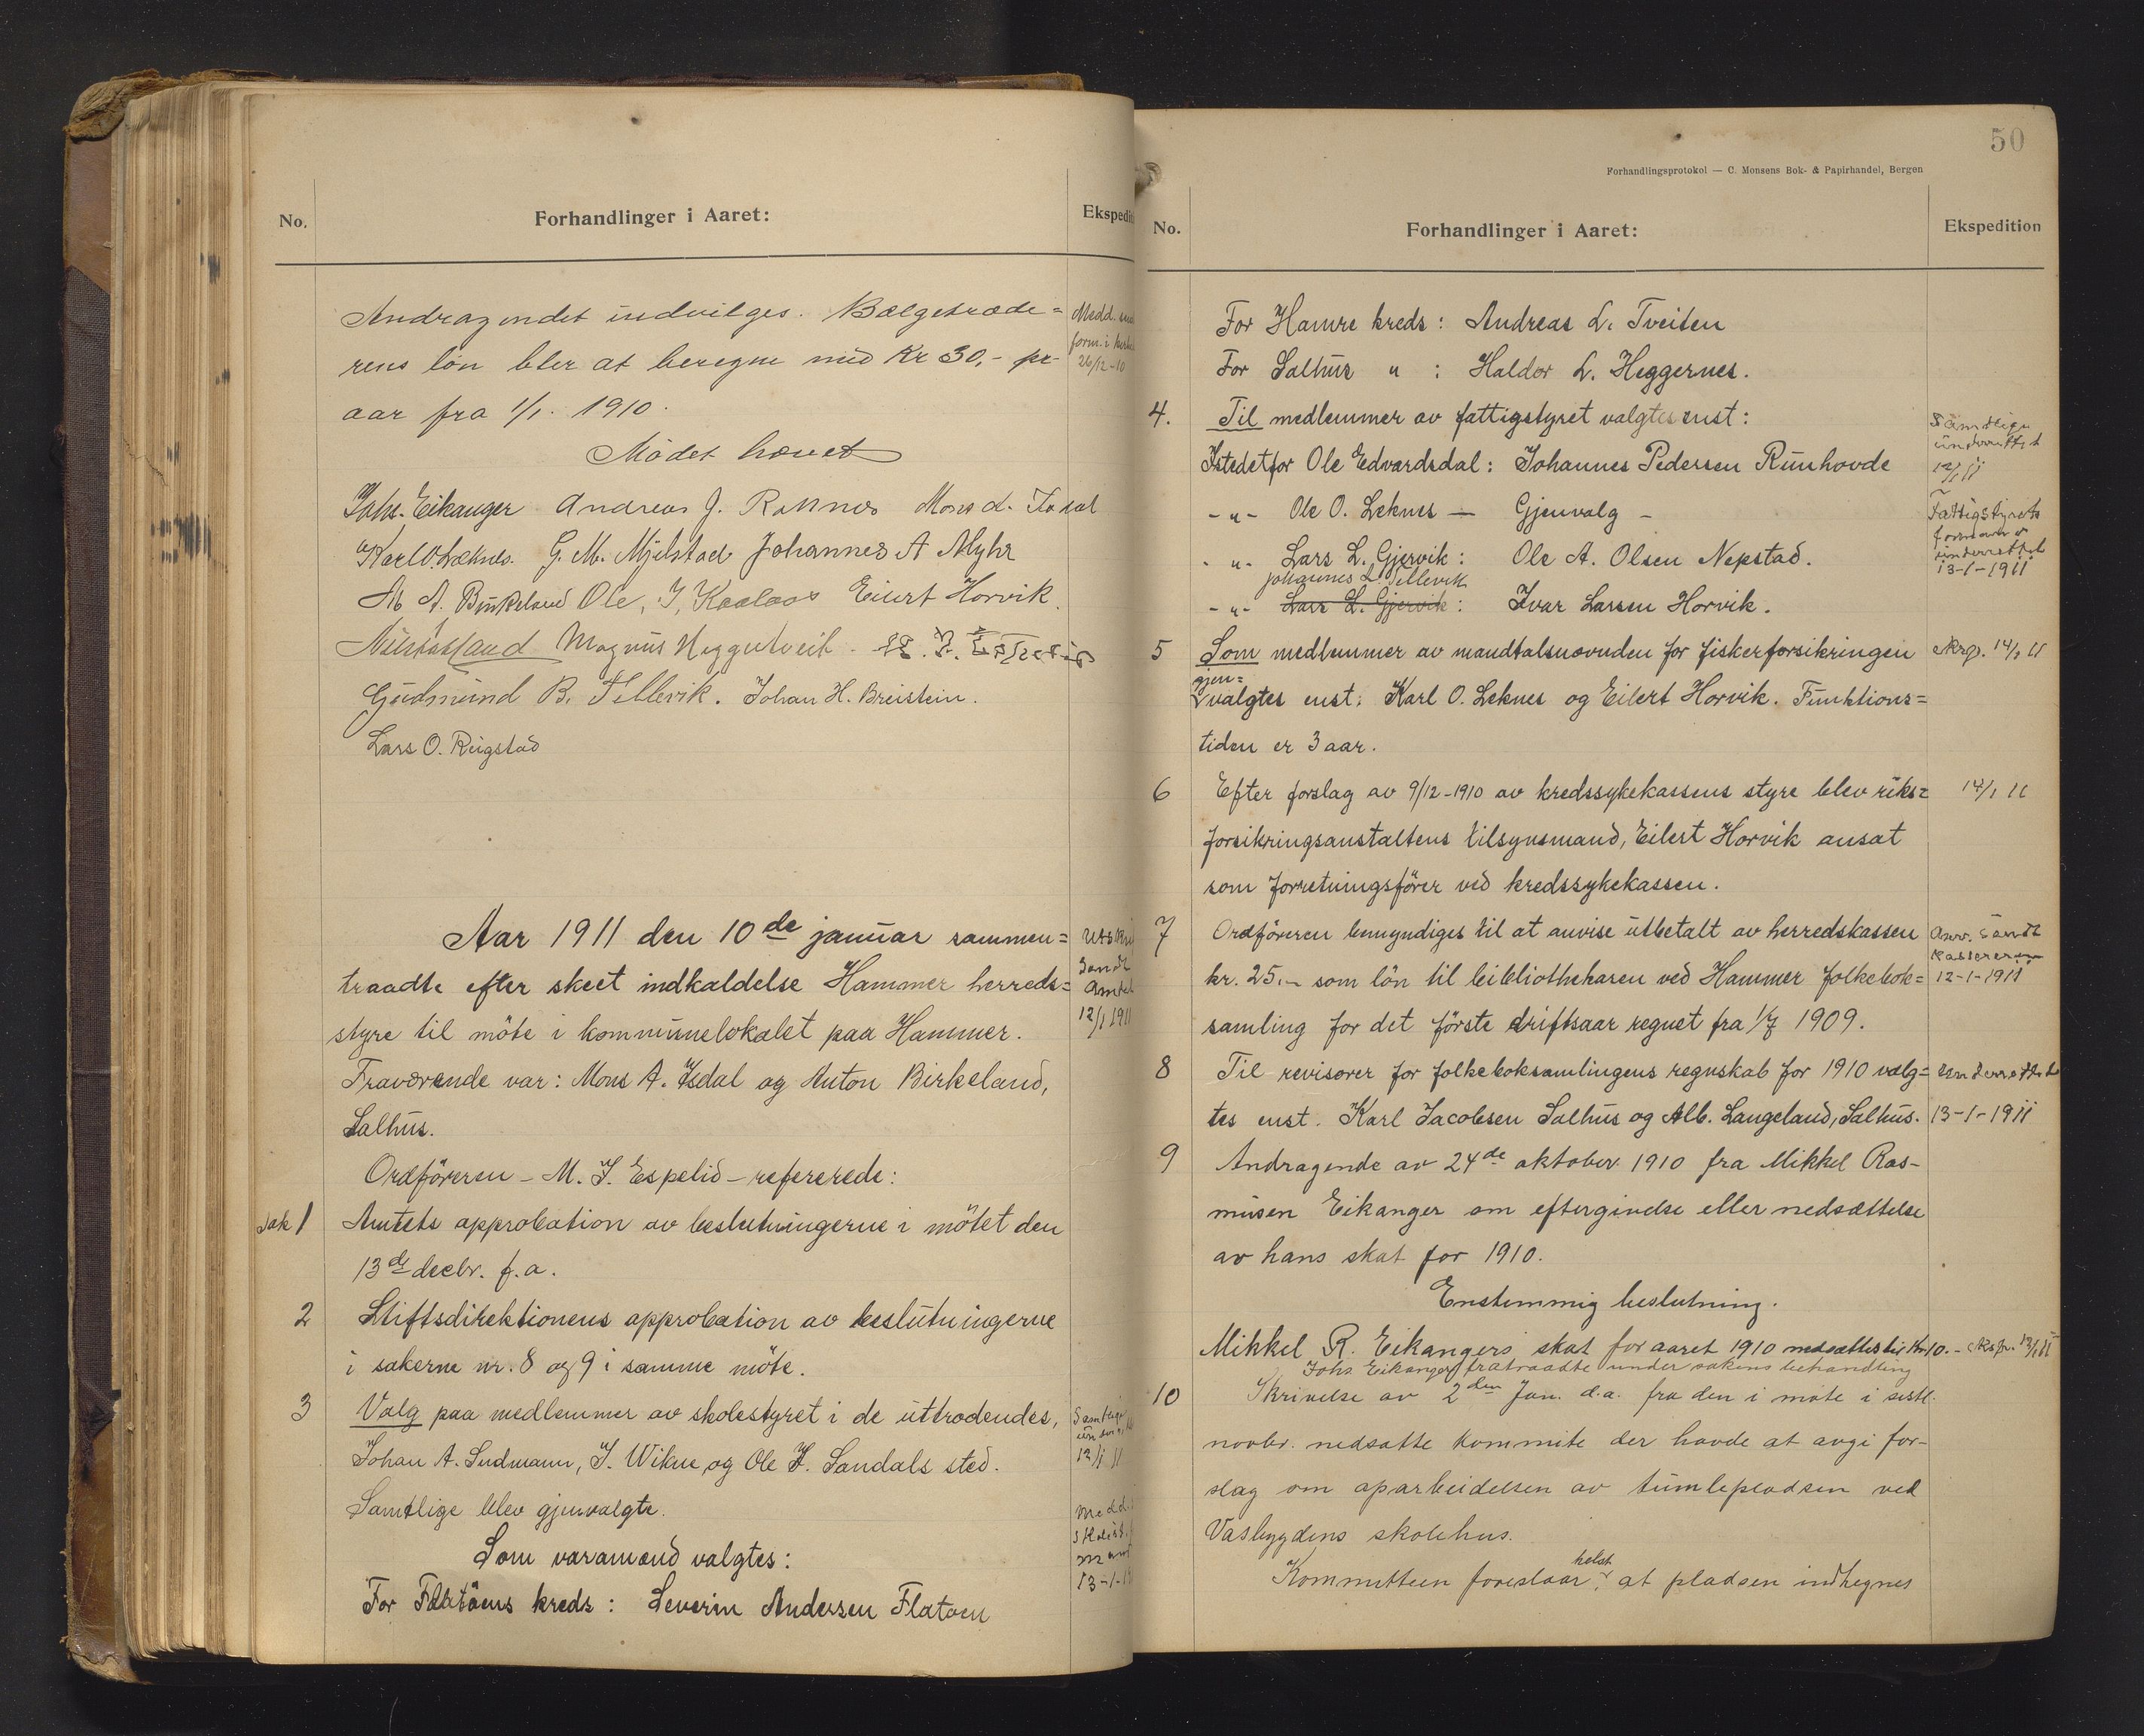 No.
Forhandlinger i Aaret:
Ekspedi
Andragendet indvilges. Bælgetræde-
rens løn bler at beregne med Kr 30,- pr
aar fra 1/1. 1910.
Mødet hævet
Medd.
form. i
26/12-10
Johs. Eikanger Andreas J. Roknes Mons A. Isdal
Karl O. Leknes. G. M. Mjelstad Johannes A Myhr
A. Birkeland Ole. I. Kaalaas Eilert Horvik.
Magnus Heggertveit
Gudmund B. Tellevik. Johan H. Breistein.
Lars O. Rügstad
Aar 1911 den 10de januar sammen=
traadte efter skeet indkaldelse Hammer herreds=
styre til möte i kommunelokalet paa Hammer.
Fraværende var: Mons A. Isdal og Anton Birkeland,
Salhus.
Utskri
Sendt
Amtet
12/1 1911
Ordföreren - M. I. Espelid - refererede:
Sak 1 Amtets approbation av beslutningerne i mötet den
13de decbr. f.a.
2 Stiftsdirektionens approbation av beslutningerne
i sakerne nr. 8 og 9 i samme möte.
3 Valg paa medlemmer av skolestyret i de uttrædendes,
Johan A. Sudmann, I. Wikne og Ole I. Sandals sted.
Samtlige blev gjenvalgte.
Samtlige
12/1 11
Som varamænd valgtes:
For Flatöens kreds: Severin Andersen Flatøen
Medd.
13-1-1
50
Forhandlingsprotokol — C. Monsens Bok- & Papirhandel, Bergen
No.
Forhandlinger i Aaret:
Ekspedition
For Hamre kreds: Andreas L. Tveiten
For Salhus " : Haldor L. Heggernes.
4. Til medlemmer av fattigstyret valgtes enst:
Istedetfor Ole Edvardsdal: Johannes Pedersen Runhovde
-"- Ole O. Leknes — Gjenvalg -
-"- Lars L. Gjervik: Ole A. Olsen Nepstad.
Johannes L. Tellevik
-"- Lars L. Gjervik: Ivar Larsen Horvik.
Samtlige
underrettet
12/1 11
Fattigstyrets
formand
underrettet
13-1-1911
5 Som medlemmer av mandtalsnævnden for fiskerforsikringen
gjen=
valgtes enst: Karl O. Leknes og Eilert Horvik. Funktions=
tiden er 3 aar.
14/1 11
6 Efter forslag av 9/12-1910 av kredssykekassens styre blev riks=
forsikringsanstaltens tilsynsmand, Eilert Horvik ansat
som forretningsförer ved kredssykekassen.
14/1 11
7 Ordföreren bemyndiges til at anvise utbetalt av herredskassen
kr. 25.- som lön til bibliothekaren ved Hammer folkebok=
samling for det förste driftsaar regnet fra 1/7 1909.
Anv. sendt
Kassereren
12-1-1911
8 Til revisorer for folkeboksamlingens regnskab for 1910 valg=
tes enst. Karl Jacobsen Salhus og Alb. Langeland, Salhus.
Underrettet
13-1-1911
9 Andragende av 24de oktober 1910 fra Mikkel Ras-
musen Eikanger om eftergivelse eller nedsættelse
av hans skat for 1910.
Enstemmig beslutning.
Mikkel R. Eikangers skat for aaret 1910 nedsættes til Kr 10.-
Johs Eikanger fratraadte under sakens behandling
10 Skrivelse av 2den Jan. d.a. fra den i møte i sistl.
novbr. nedsatte kommite der havde at avgi for-
slag om oparbeidelsen av tumlepladsen ved
Vasbygdens skolehus.
helst
Kommitteen foreslaar, at pladsen indhegnes